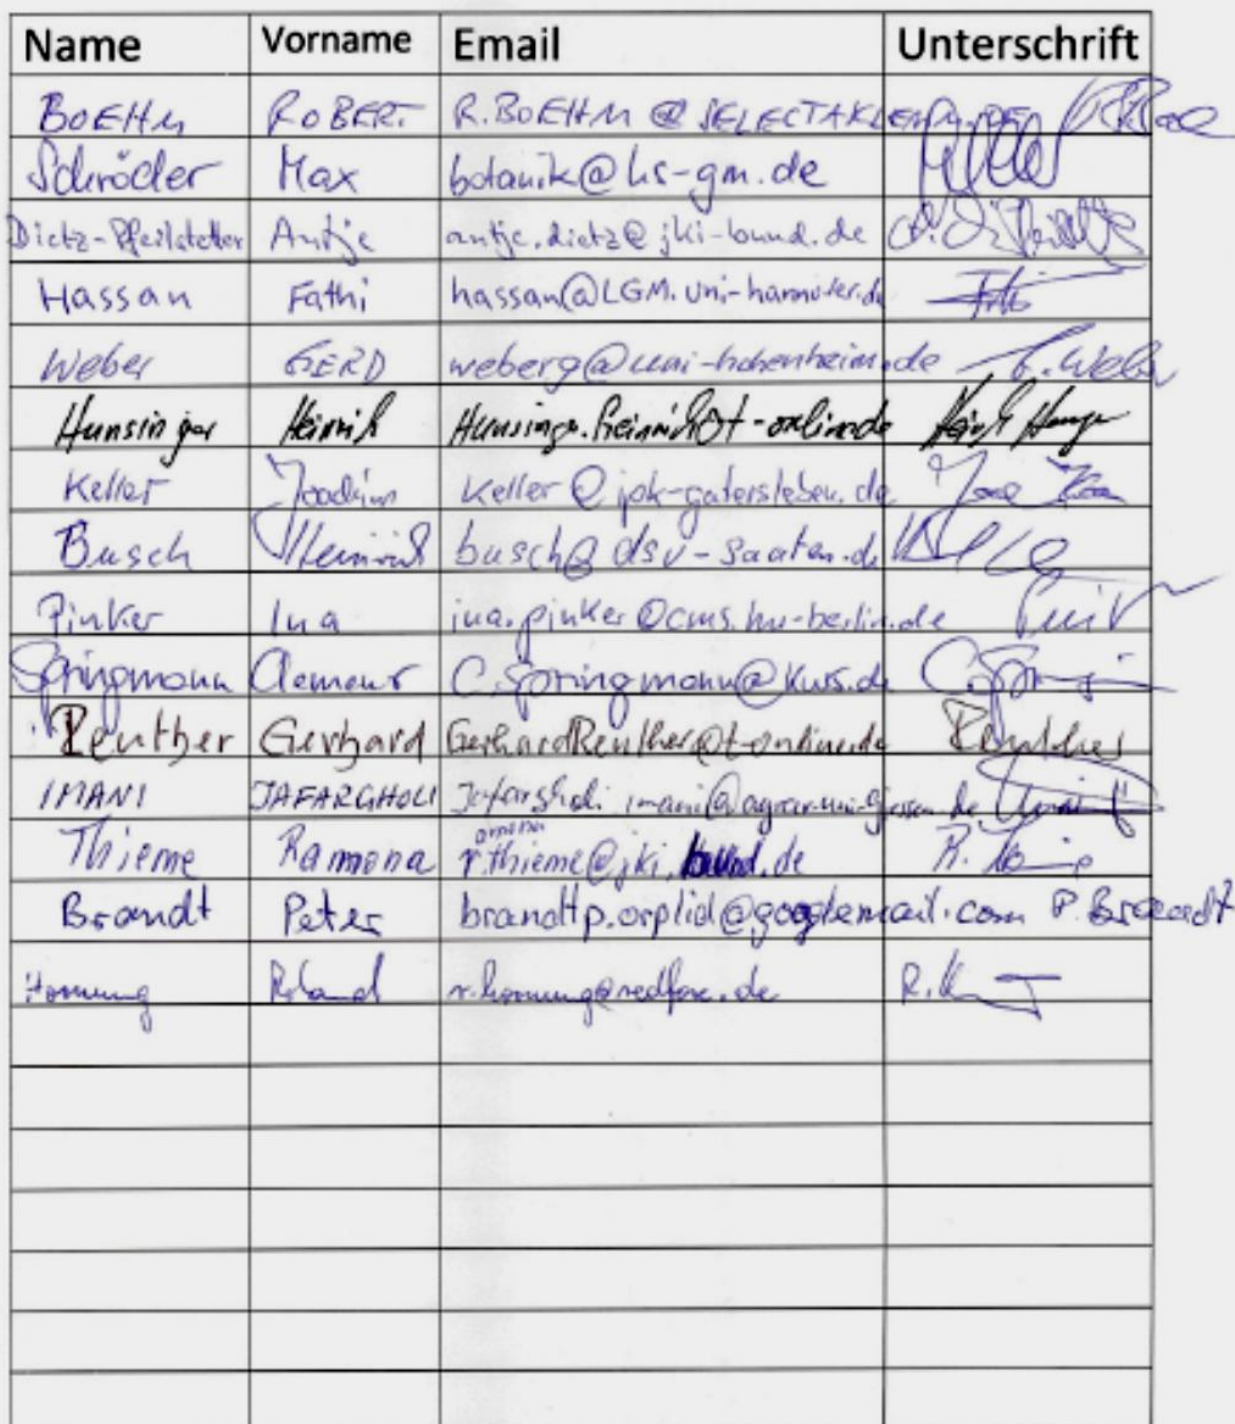 Name Vorname Email Unterschrift
BOEHM ROBERT R.BOEHM @ SELECTAKLEMM.DE
Schröder Max botanik@hs-gm.de
Dietz-Pfeilstetter Antje antje.dietz@jki-bund.de
Hassan Fathi hassan@LGM.uni-hannover.de
Weber GERD weberg@uni-hohenheim.de G. Weber
Hunsinger Heinrich Hunsinger.heinrich@t-online.de
Keller Joachim Keller@ipk-gatersleben.de
Busch Heinrich busch@dsv-saaten.de
Pinker Ina ina.pinker@cms.hu-berlin.de
Springmann Clemens C.Springmann@kws.de
Reuther Gerhard GerhardReuther@t-online.de Reuther
IMANI JAFARGHOLI
Thieme Ramona ramona.thieme@jki.bund.de
Brandt Peter brandtp.orplid@googlemail.com P. Brandt
Hornung Roland r.hornung@redfox.de